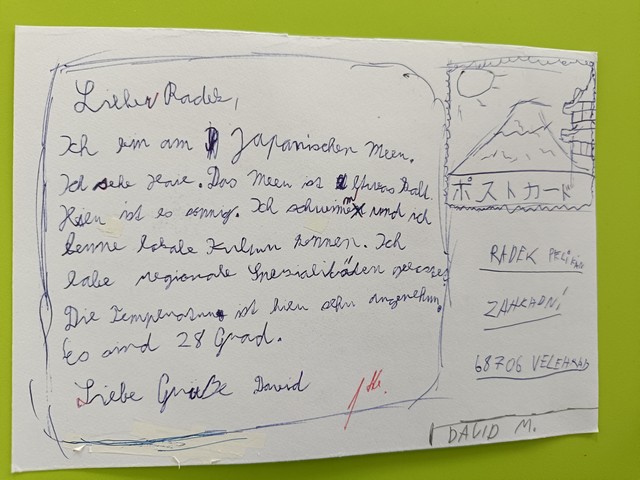 Lieber Radek,
Ich bin am Japanischen Meer.
Ich sehe Haie. Das Meer ist etwas kalt.
Hier ist es sonnig. Ich schwimme und ich
lerne lokale Kultur kennen. Ich
habe regionale Spezialitäten gegessen
Die Temperatur ist hier sehr angenehm.
Es sind 28 Grad.
Liebe Gruße David
ポストカード
RADEK PELIKÁN
ZAHRADNÍ
68706 VELEHRAD
DAVID M.